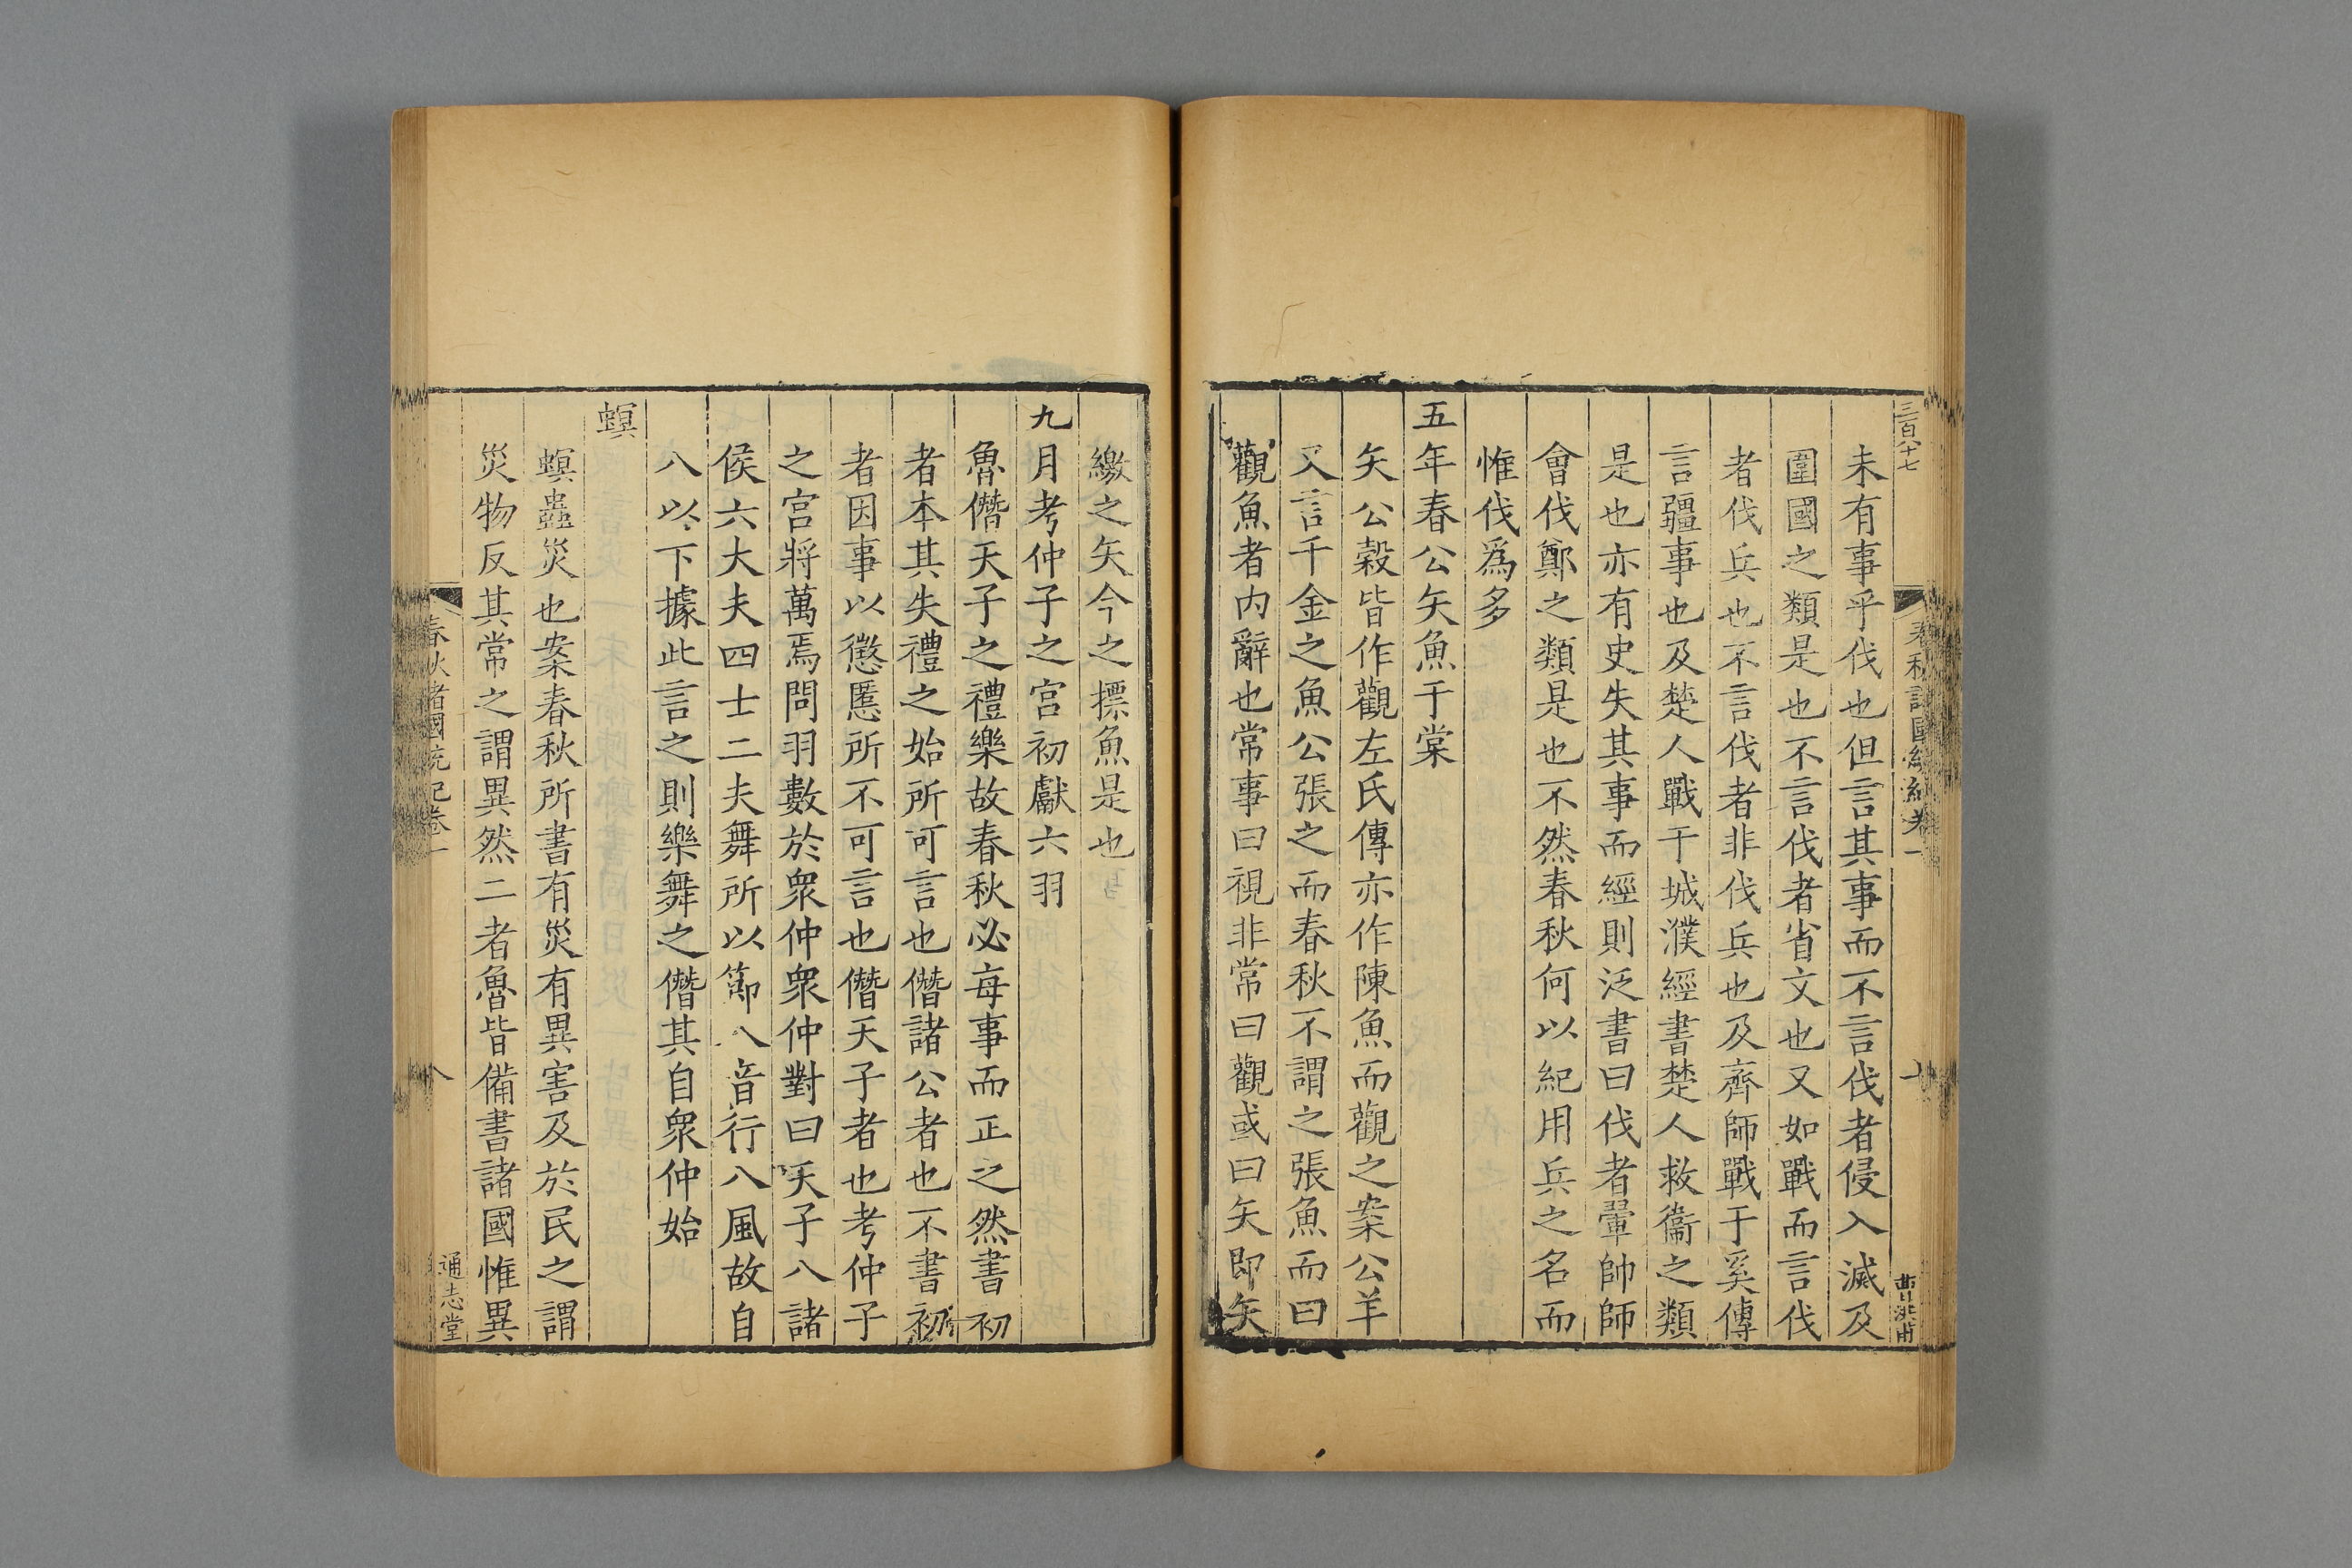 三百八十七
春秋諸國統紀卷一
十
曹洪甫
未有事乎伐也但言其事而不言伐者侵入滅及
圍國之類是也不言伐者省文也又如戰而言伐
者伐兵也不言伐者非伐兵也及齊師戰于奚傳
言疆事也及楚人戰于城濮經書楚人救衞之類
是也亦有史失其事而經則泛書曰伐者翬帥師
會伐鄭之類是也不然春秋何以紀用兵之名而
惟伐爲多
五年春公矢魚于棠
矢公榖皆作觀左氏傳亦作陳魚而觀之案公羊
又言千金之魚公張之而春秋不謂之張魚而曰
觀魚者内辭也常事曰視非常曰觀或曰矢即矢
繳之矢今之摽魚是也
九月考仲子之宫初獻六羽
魯僭天子之禮樂故春秋必每事而正之然書初
者本其失禮之始所可言也僭諸公者也不書初
者因事以懲慝所不可言也僭天子者也考仲子
之宫將萬焉問羽數於衆仲衆仲對曰天子八諸
侯六大夫四士二夫舞所以節八音行八風故自
八以下據此言之則樂舞之僭其自衆仲始
螟
螟蟲災也案春秋所書有災有異害及於民之謂
災物反其常之謂異然二者魯皆備書諸國惟異
春秋諸國統紀卷一
八
通志堂